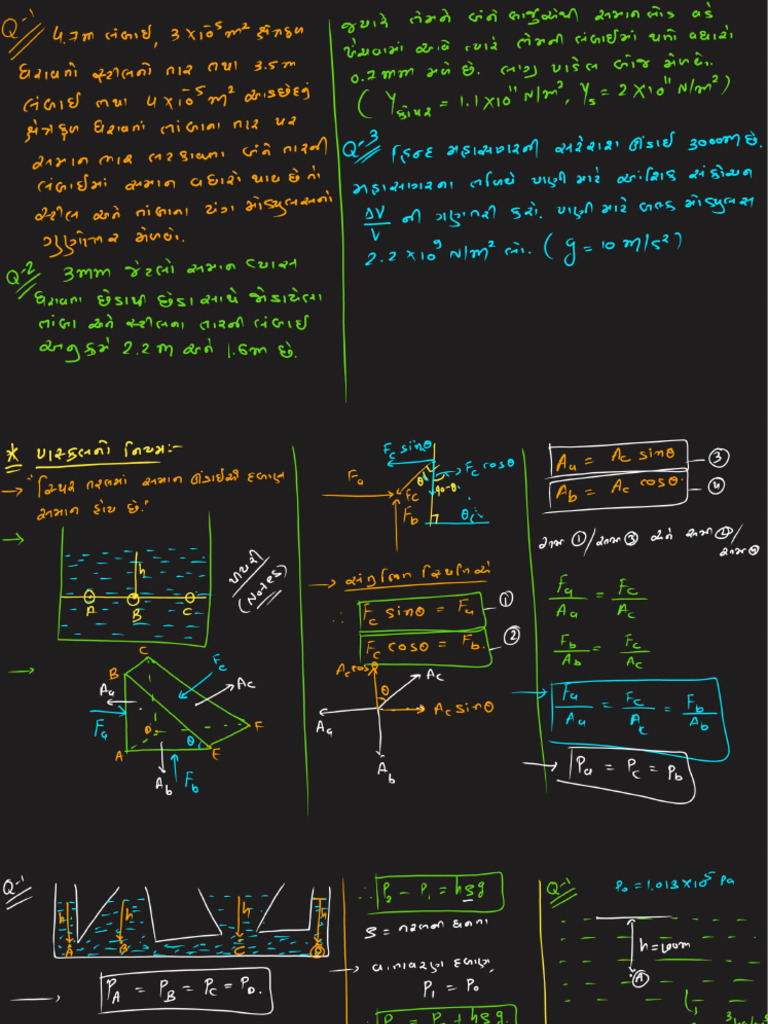 Q-1
4.7m લંબાઈ, 3×10⁻⁵ m² ક્ષેત્રફળ
ધરાવતો સ્ટીલનો તાર તથા 3.5m
લંબાઈ તથા 4×10⁻⁵ m² આડછેદનું
ક્ષેત્રફળ ધરાવતા તાંબાના તાર પર
સમાન ભાર લટકાવતા બંને તારની
લંબાઈમાં સમાન વધારો થાય છે તો
સ્ટીલ અને તાંબાના યંગ મોડ્યુલસનો
ગુણોત્તર મેળવો.
Q-2
3mm જેટલો સમાન વ્યાસ
ધરાવતા છેડાથી છેડા સાથે જોડાયેલા
તાંબા અને સ્ટીલના તારની લંબાઈ
અનુક્રમે 2.2m અને 1.6m છે.
જ્યારે તેમને બંને બાજુએથી સમાન બોડ વડે
ખેંચવામાં આવે ત્યારે તેમની લંબાઈમાં થતો વધારો
0.7mm મળે છે. લાગુ પાડેલ બોજ મેળવો.
(Yકોપર = 1.1×10¹¹ N/m², Ys = 2×10¹¹ N/m²)
Q-3
હિન્દ મહાસાગરની સરેરાશ ઊંડાઈ 3000m છે.
મહાસાગરના તળિયે પાણી માટે આંશિક સંકોચન
ΔV/V ની ગણતરી કરો. પાણી માટે બલ્ક મોડ્યુલસ
2.2×10⁹ N/m² લો. (g = 10 m/s²)
* પાસ્કલનો નિયમ:-
→ "સ્થિર તરલમાં સમાન ઊંડાઈએ દબાણ
સમાન હોય છે."
→
h
A B C
સાબિતી
(Notes)
→
C
B
Fc
Aa
Ac
Fa
D
F
θ
A
E
Ab
Fb
Fc sinθ
Fa
θ
Fc cosθ
Fc
90-θ
Fb
θ
→ સંતુલિત સ્થિતિએ
∴ Fc sinθ = Fa ①
Fc cosθ = Fb. ②
Ac cosθ
Ac
θ
Aa
Ac sinθ
Ab
Aa = Ac sinθ ③
Ab = Ac cosθ. ④
સમી ①/સમી ③ અને સમી ②/સમી ④
Fa/Aa = Fc/Ac
Fb/Ab = Fc/Ac
→ Fa/Aa = Fc/Ac = Fb/Ab
→ Pa = Pc = Pb
Q-1
h h h h
A B C D
→ PA = PB = PC = PD.
∴ P2 - P1 = hρg
ρ = તરલની ઘનતા
→ વાતાવરણ દબાણ,
P1 = P0
Q-1
P0 = 1.013×10⁵ Pa
h = 100m
A